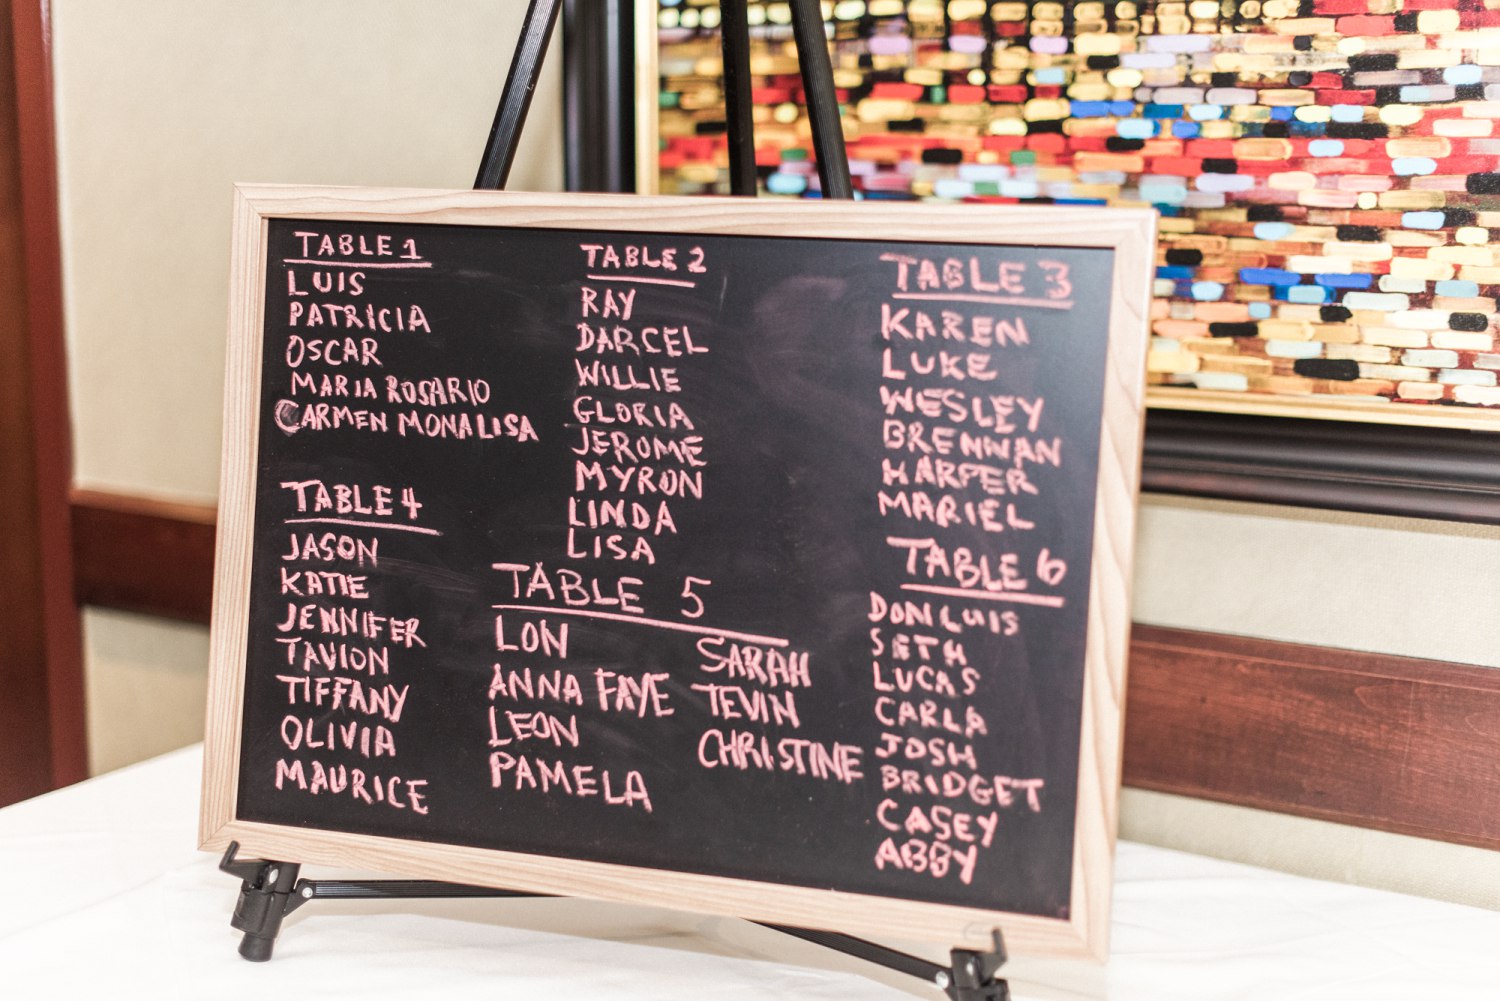 TABLE 1
LUIS
PATRICIA
OSCAR
MARIA ROSARIO
CARMEN MONALISA
TABLE 2
RAY
DARCEL
WILLIE
GLORIA
JEROME
MYRON
LINDA
LISA
TABLE 3
KAREN
LUKE
WESLEY
BRENNAN
HARPER
MARIEL
TABLE 4
JASON
KATIE
JENNIFER
TAVION
TIFFANY
OLIVIA
MAURICE
TABLE 5
LON
ANNA FAYE
LEON
PAMELA
SARAH
TEVIN
CHRISTINE
TABLE 6
DON LUIS
SETH
LUCAS
CARLA
JOSH
BRIDGET
CASEY
ABBY